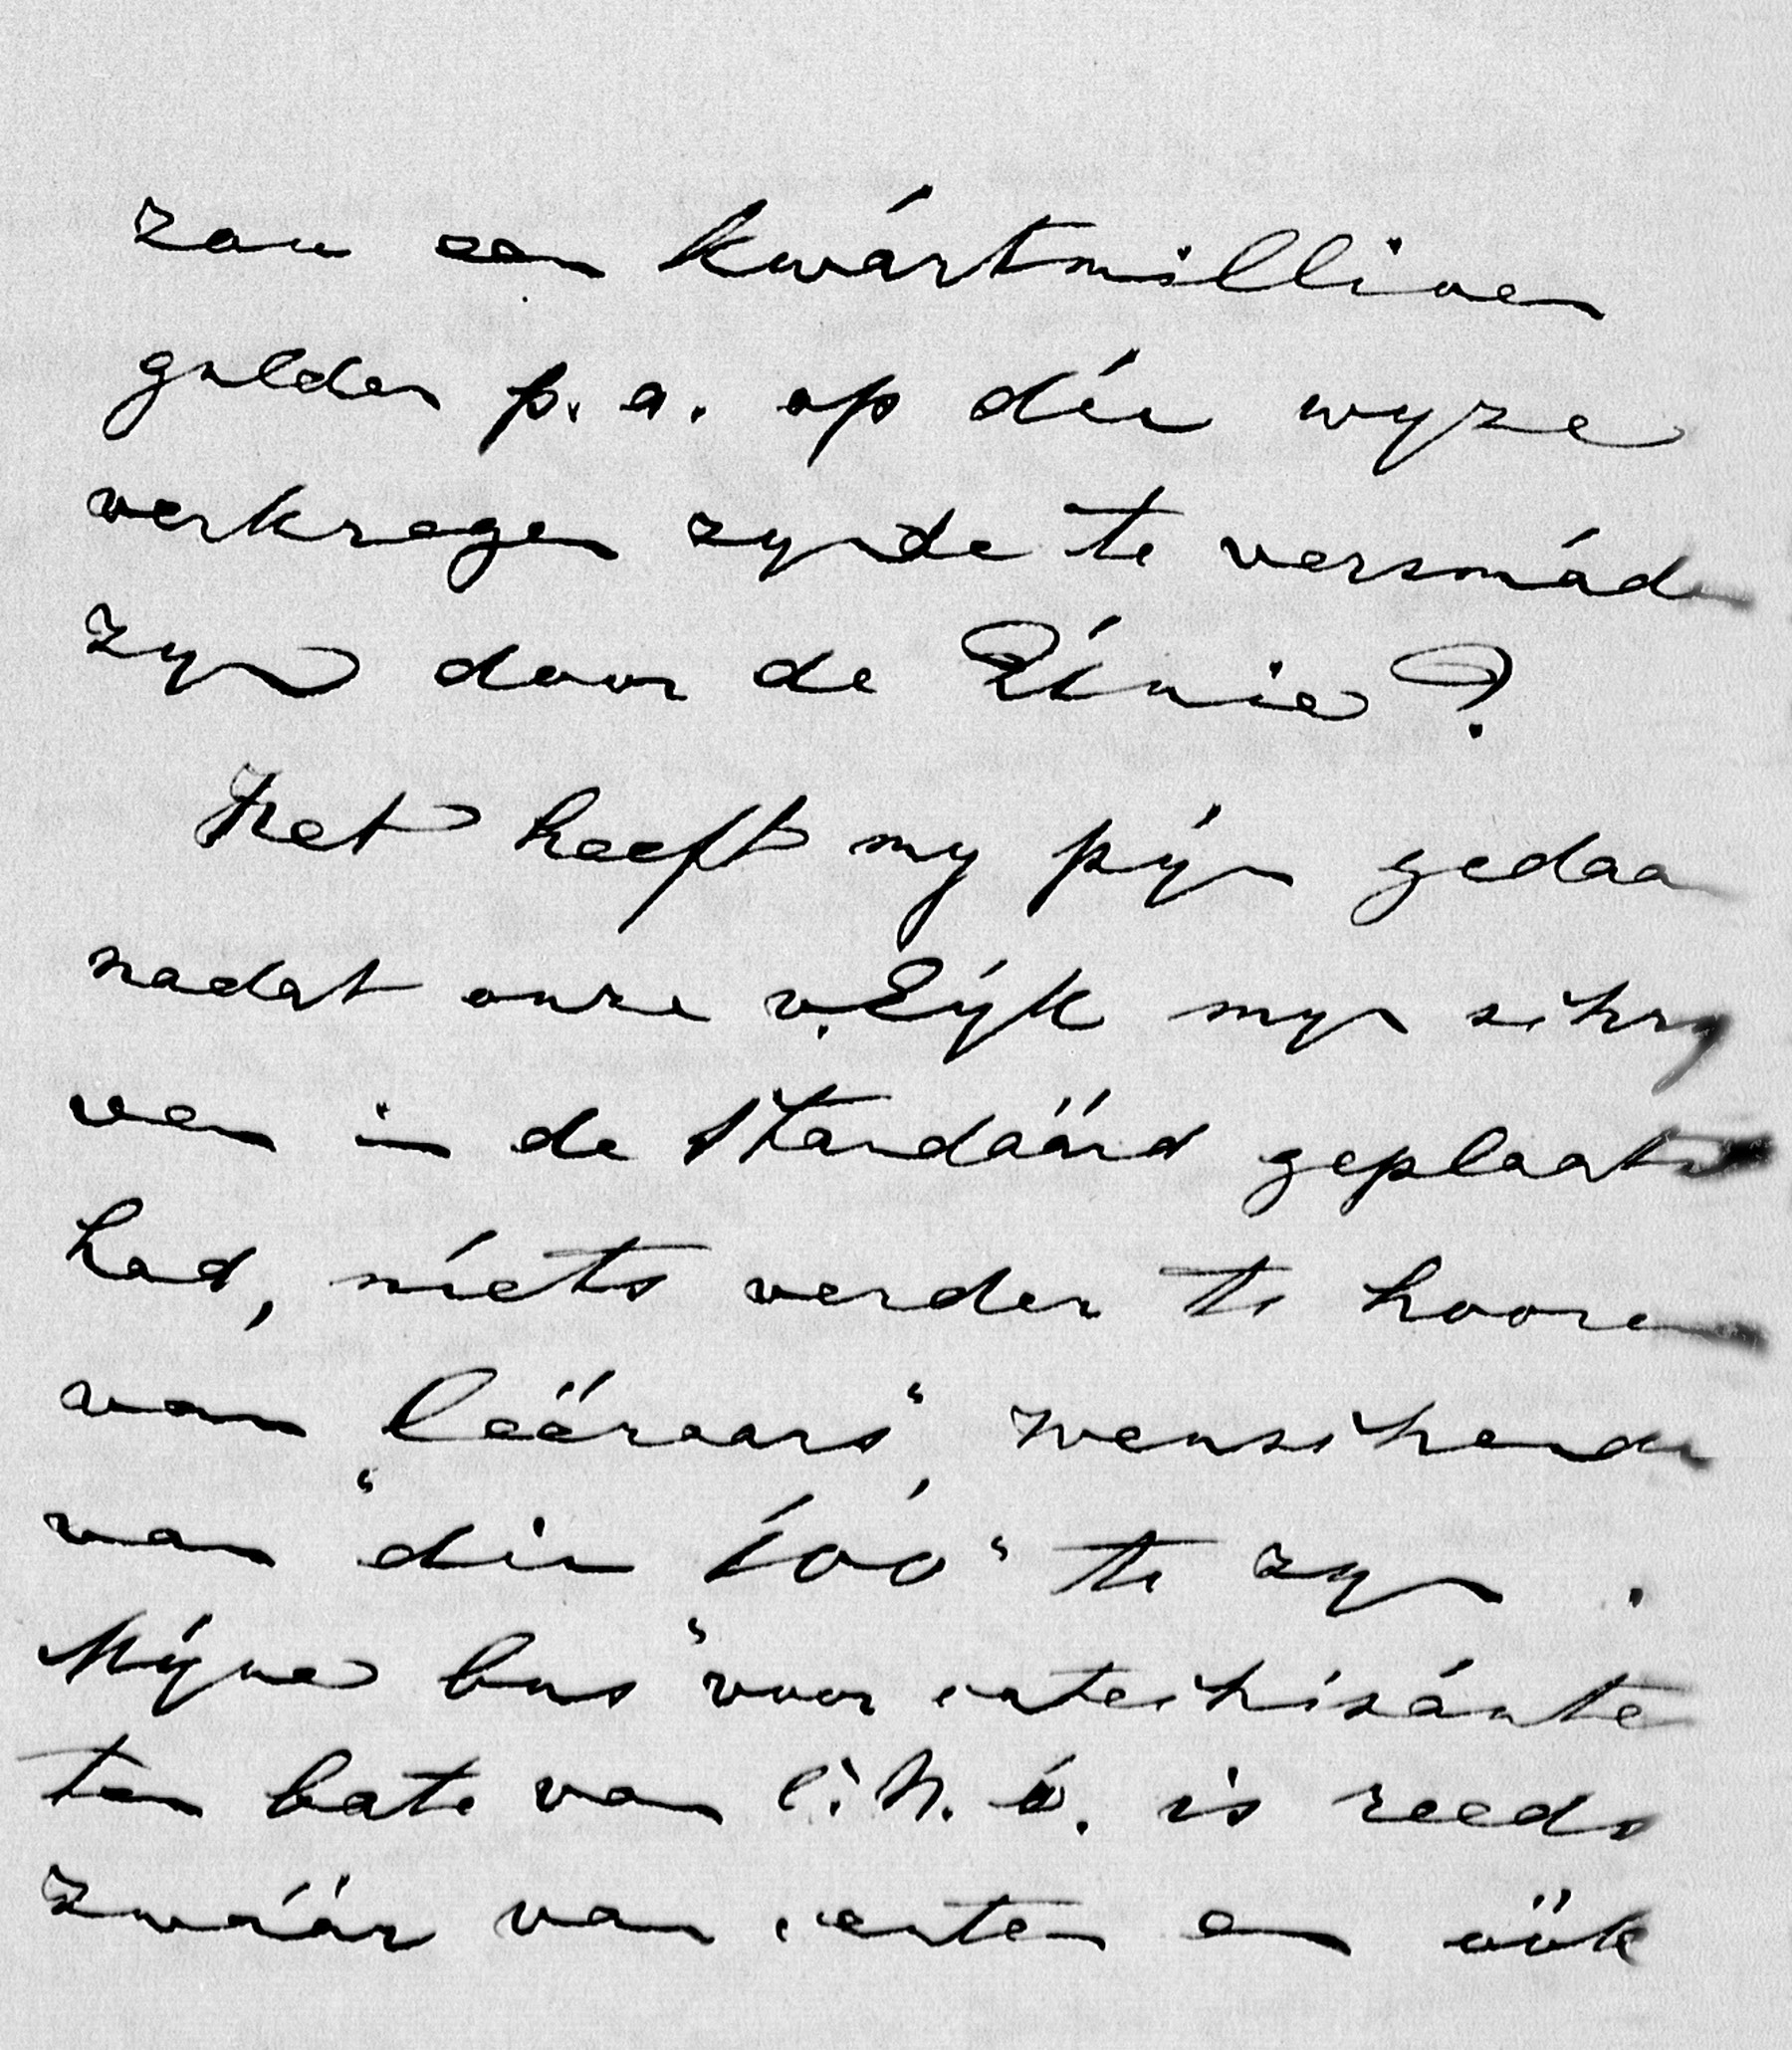 zou een kwártmillioen
gulden p. a. op díe wyze
verkregen zynde te versmáden
zyn door de Únie?
Het heeft my pýn gedaan
nadat onze v. Eýk myn schry
ven in de Standáárd geplaatst
had, níets verder te hooren
van leeraars", wenschende
van "die 100" te zyn.
Mýne bus "voor catechisánte
ten bate van C. N. O. is reeds
zwáár van centen en óók